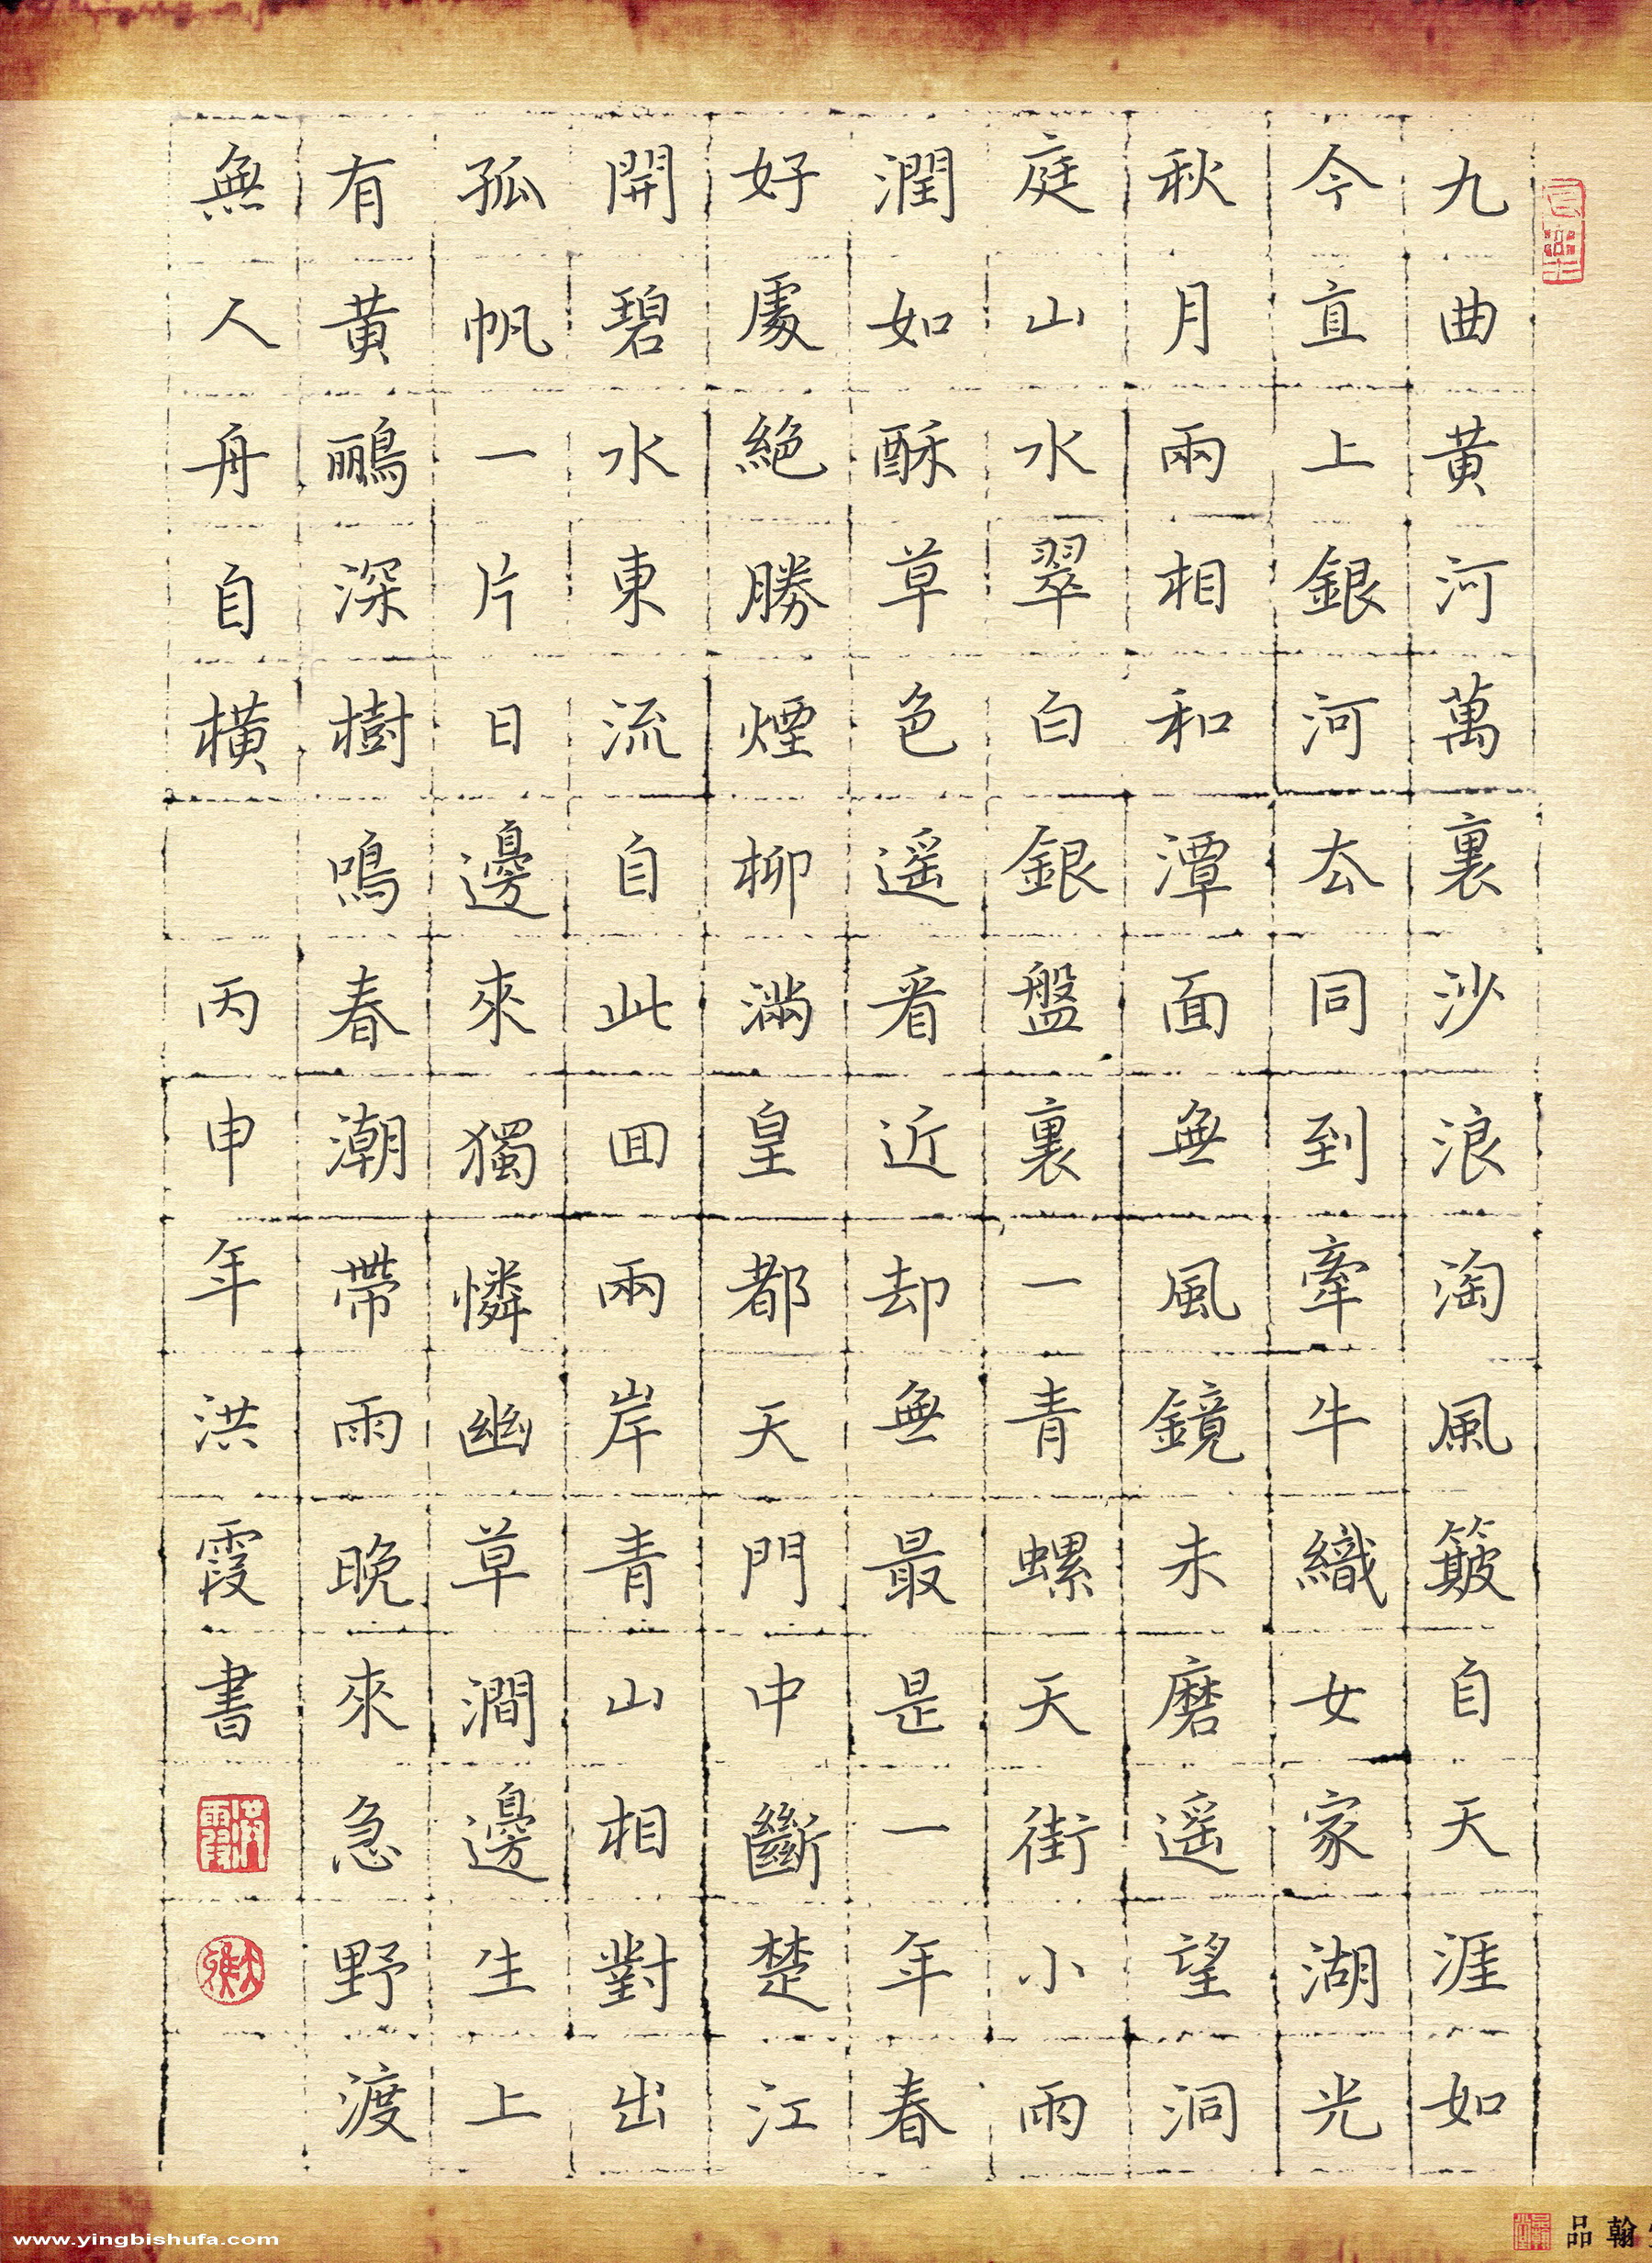 九曲黄河萬裏沙浪淘風簸自天涯如
今直上銀河去同到牽牛織女家湖光
秋月兩相和潭面無風鏡未磨遥望洞
庭山水翠白銀盤裏一青螺天街小雨
潤如酥草色遥看近却無最是一年春
好處絕勝煙柳滿皇都天門中斷楚江
開碧水東流自此回兩岸青山相對出
孤帆一片日邊來獨憐幽草澗邊生上
有黄鸝深樹鳴春潮帶雨晚來急野渡
無人舟自橫 丙申年洪霞書
洪霞
品翰
www.yingbishufa.com